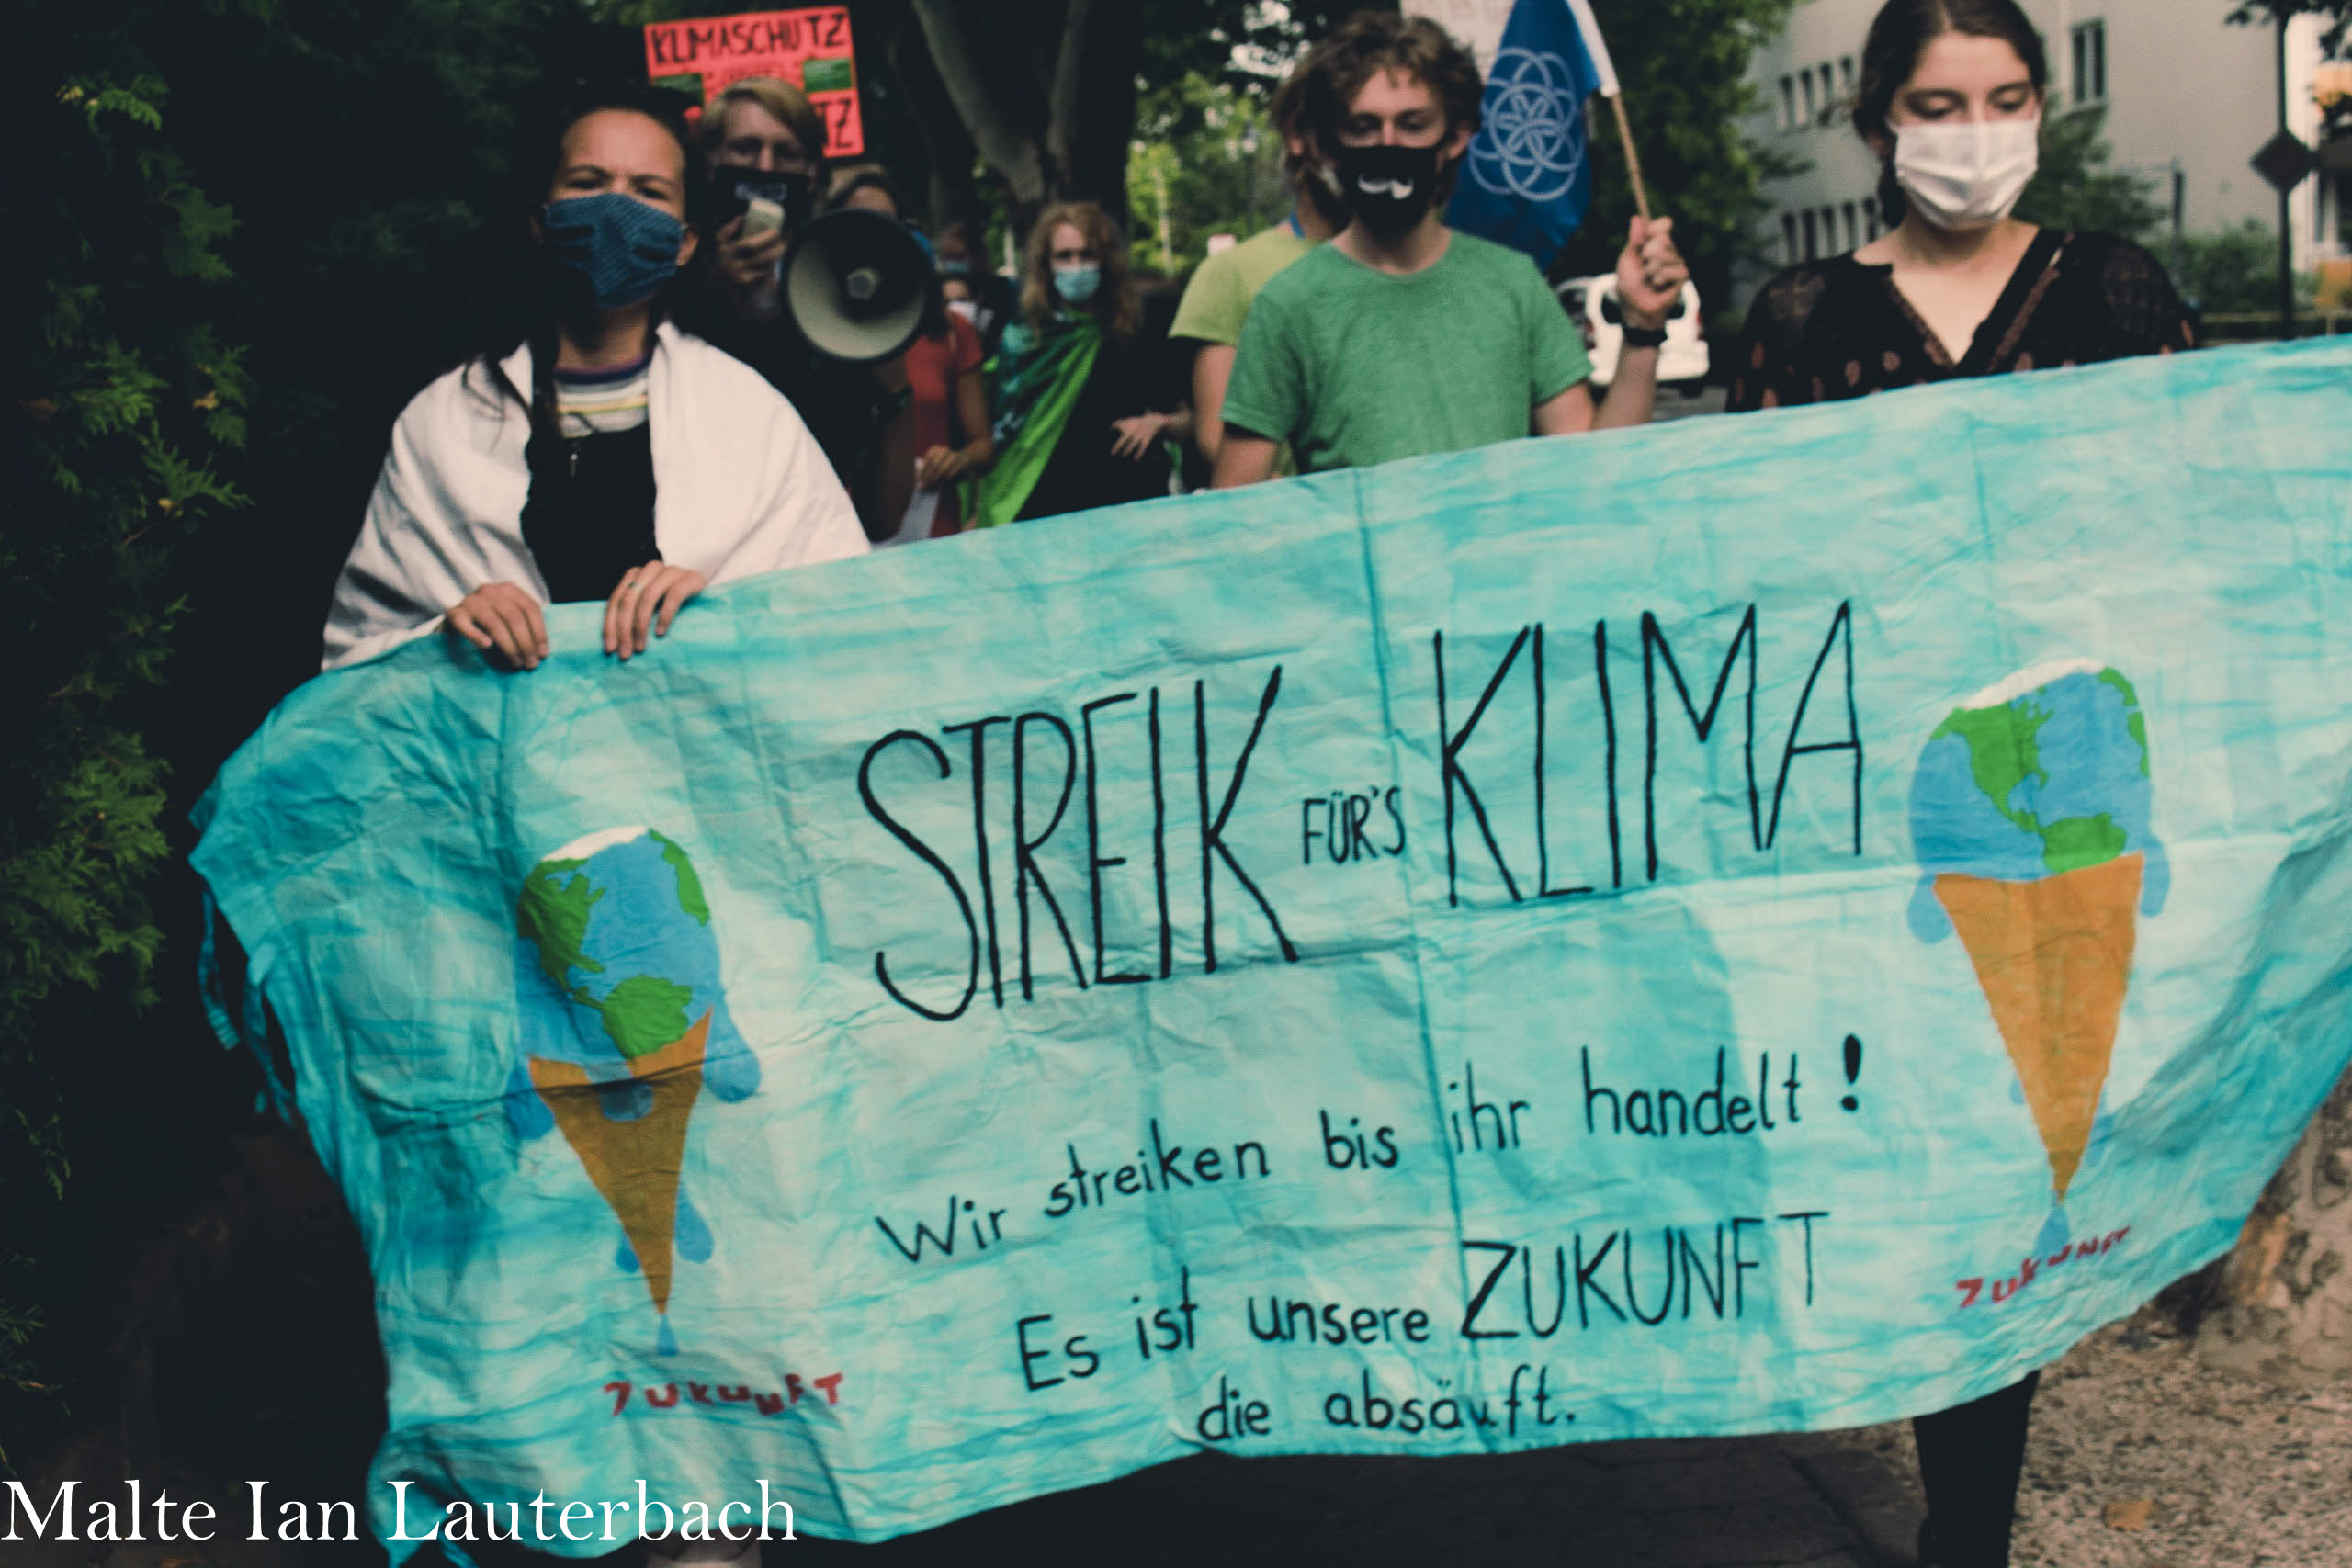 KLIMASCHUTZ
STREIK FÜR'S KLIMA
Wir streiken bis ihr handelt!
Es ist unsere ZUKUNFT
die absäuft.
ZUKUNFT
ZUKUNFT
Malte Ian Lauterbach